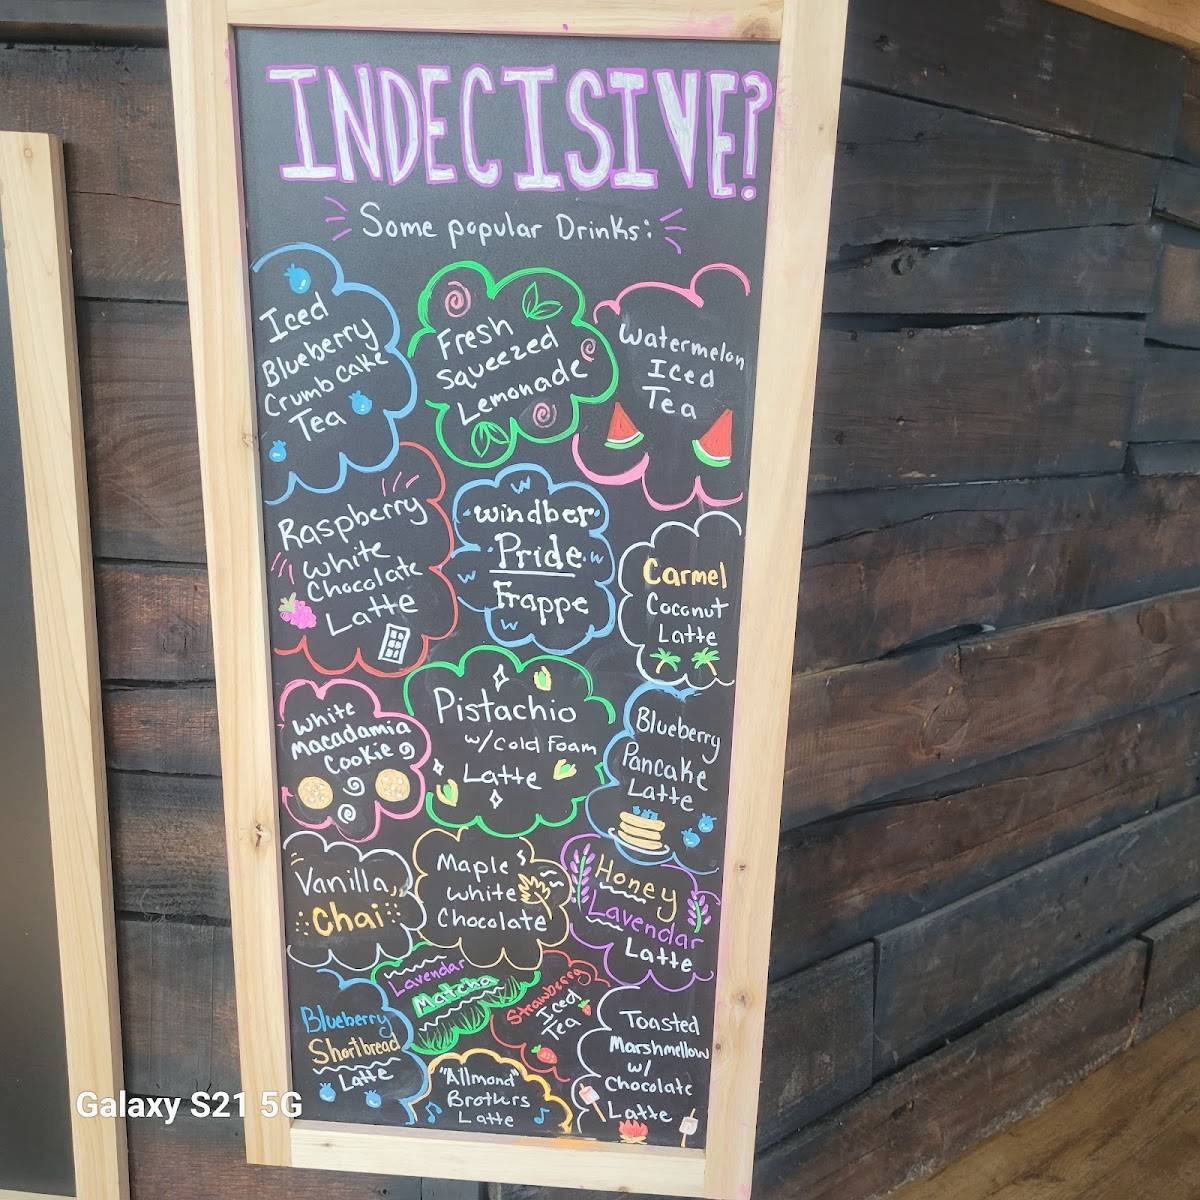 INDECISIVE?
Some popular Drinks:
Iced
Blueberry
Crumb cake
Tea
Fresh
Squeezed
Lemonade
Watermelon
Iced
Tea
Raspberry
White
Chocolate
Latte
Windber
Pride
Frappe
Carmel
Coconut
Latte
White
Macadamia
Cookie
Pistachio
w/ Cold Foam
Latte
Blueberry
Pancake
Latte
Vanilla
Chai
Maple
White
Chocolate
Honey
Lavendar
Latte
Lavendar
Matcha
Strawberry
Iced
Tea
Blueberry
Shortbread
Latte
"Allmond"
Brothers
Latte
Toasted
Marshmellow
w/
Chocolate
Latte
Galaxy S21 5G